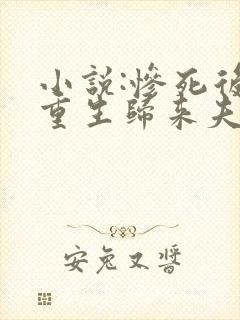 小説:慘死後
重生歸來夫
安兔又醬